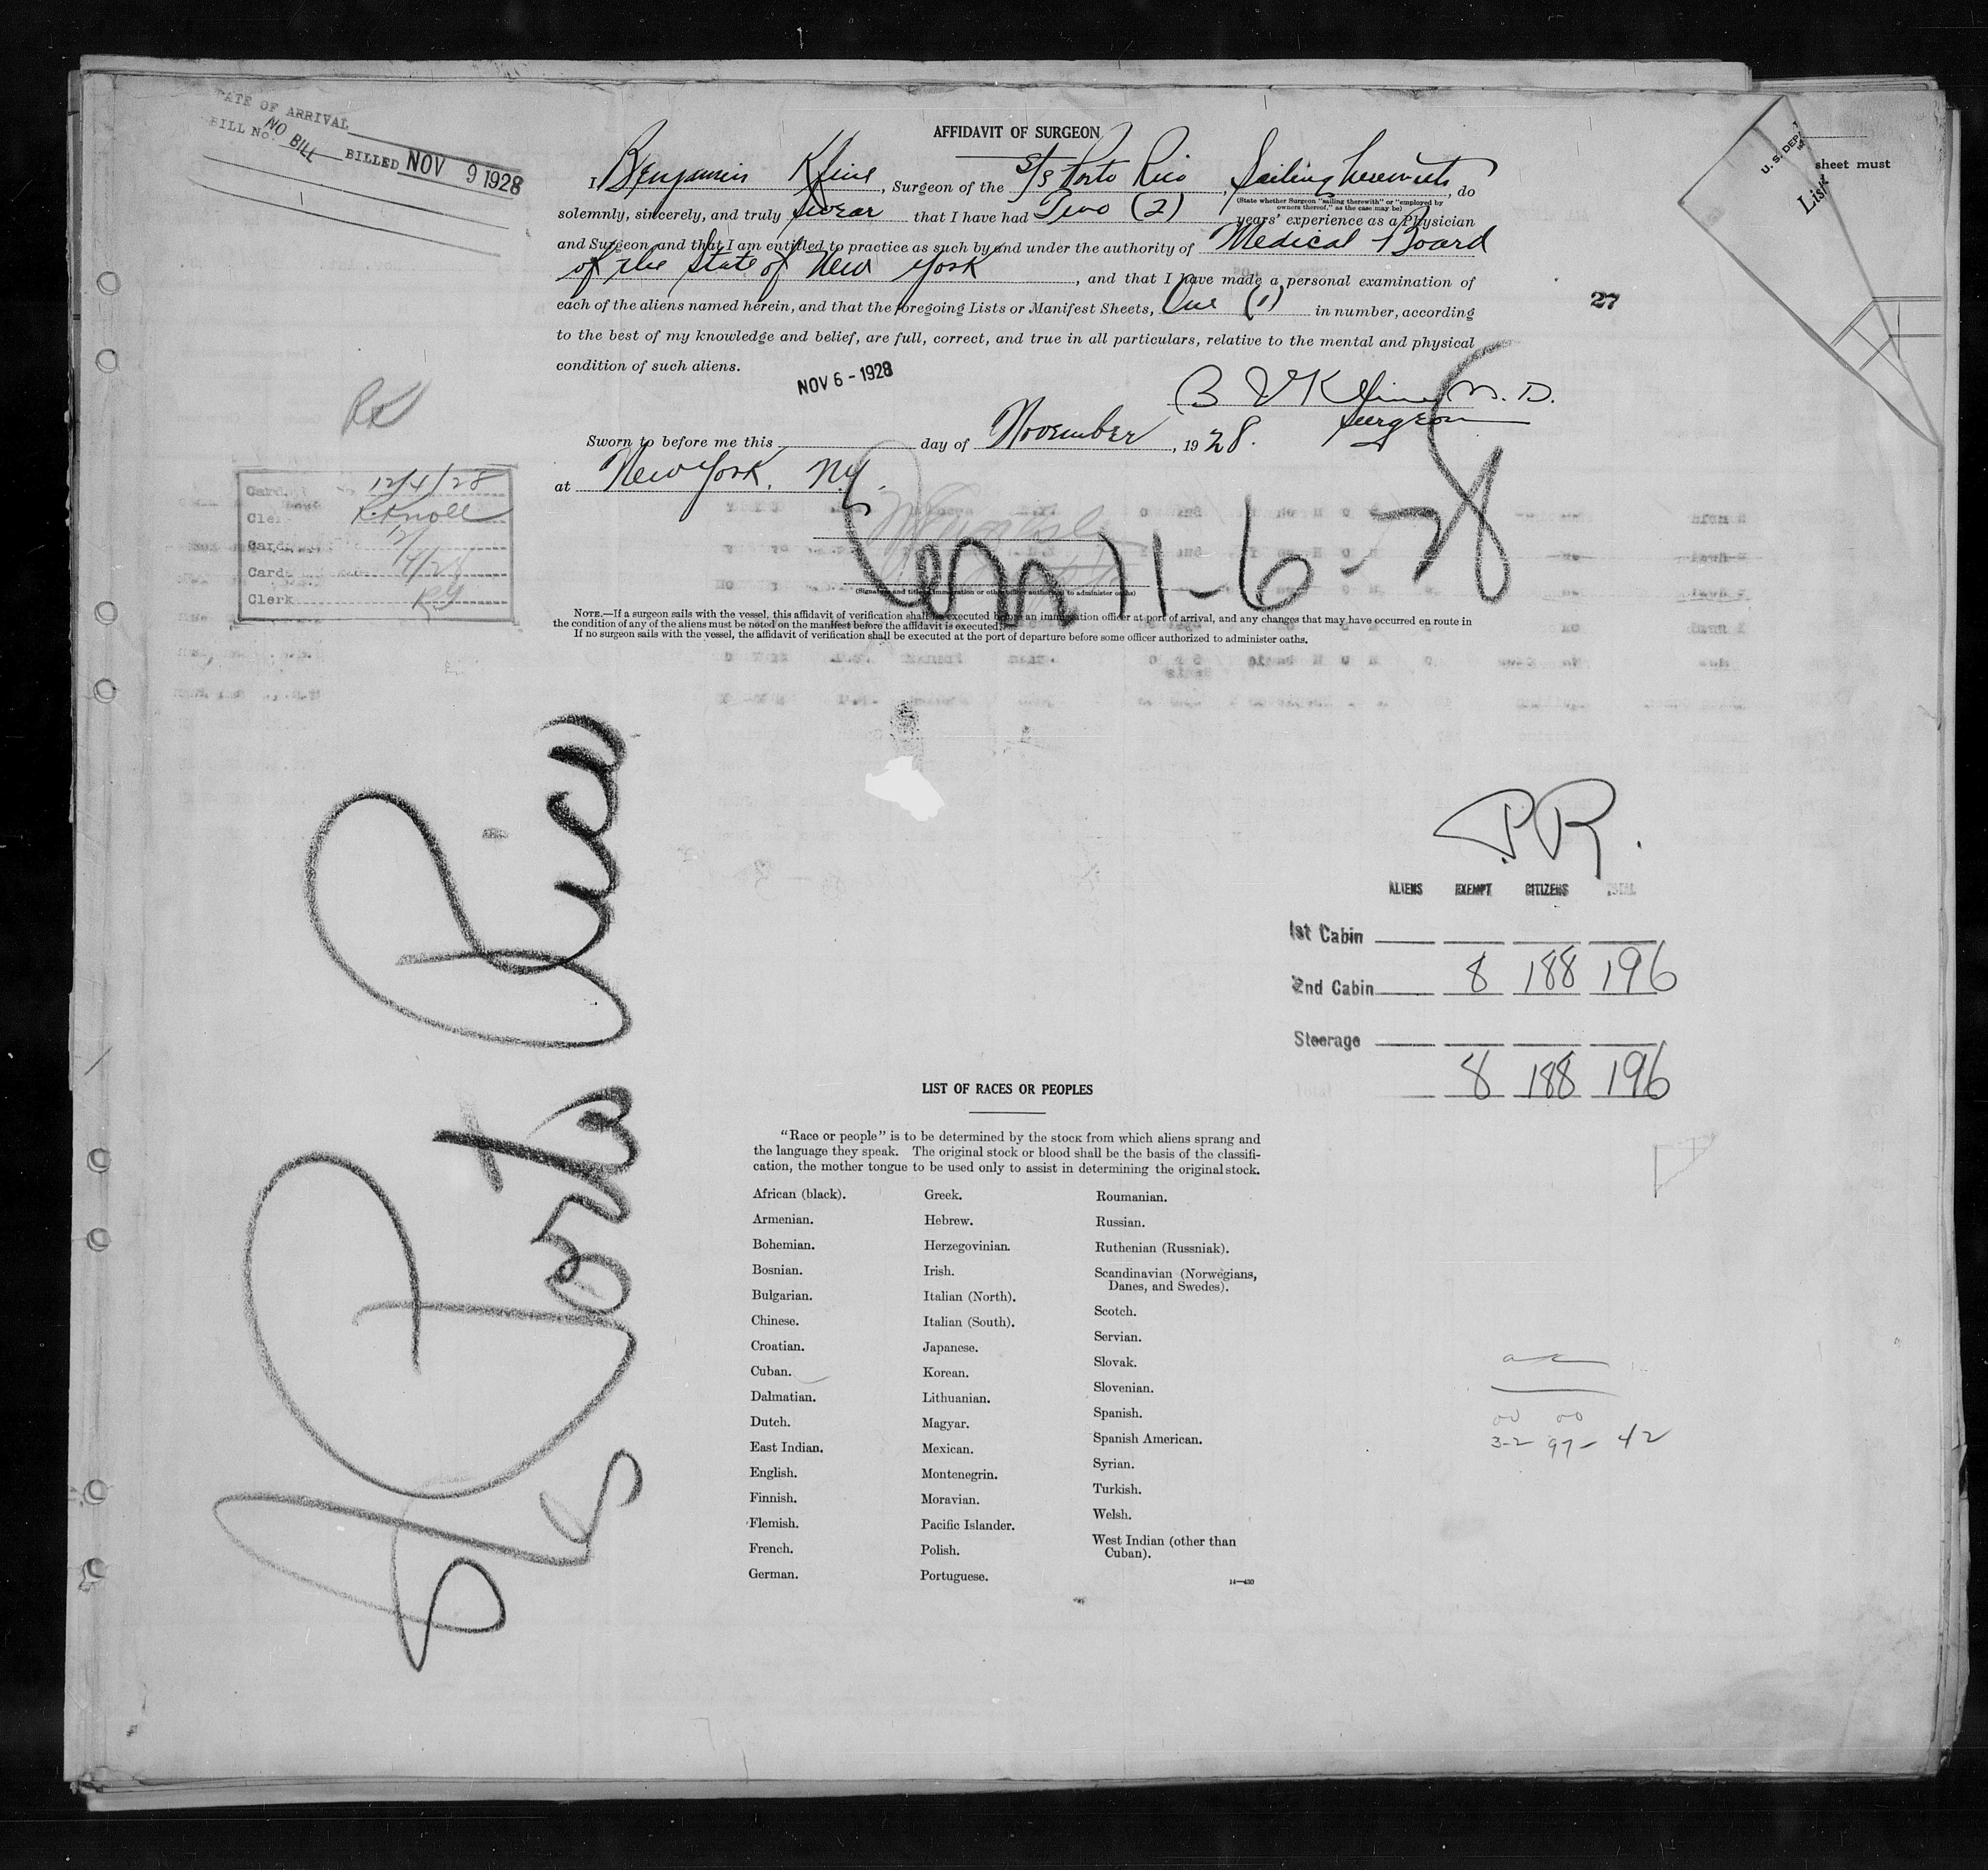 DATE OF ARRIVAL
BILL No. NO BILL BILLED NOV 9 1928
U. S. DEP
sheet must
List
AFFIDAVIT OF SURGEON
I Benjamin Kline, Surgeon of the S/S Porto Rico, Sailing herewith, do
(State whether Surgeon "sailing therewith" or "employed by
owners thereof," as the case may be)
solemnly, sincerely, and truly swear that I have had Two (2) years' experience as a Physician
and Surgeon and that I am entitled to practice as such by and under the authority of Medical Board
of the State of New York, and that I have made a personal examination of
each of the aliens named herein, and that the foregoing Lists or Manifest Sheets, One (1) in number, according
to the best of my knowledge and belief, are full, correct, and true in all particulars, relative to the mental and physical
condition of such aliens.
27
NOV 6 - 1928
B V Kline M. D.
Surgeon
Sworn to before me this day of November, 1928.
at New York, N.Y.
11-6-28
(Signature and title of immigration or other officer authorized to administer oaths)
NOTE.—If a surgeon sails with the vessel, this affidavit of verification shall be executed before an immigration officer at port of arrival, and any changes that may have occurred en route in
the condition of any of the aliens must be noted on the manifest before the affidavit is executed.
If no surgeon sails with the vessel, the affidavit of verification shall be executed at the port of departure before some officer authorized to administer oaths.
Card 12/4/28
Clerk R. Knoll
Card 12/
Card 4/28
Clerk RG
S/S Porto Rico
P.R.
ALIENS EXEMPT CITIZENS TOTAL
1st Cabin
2nd Cabin 8 188 196
Steerage
Total 8 188 196
LIST OF RACES OR PEOPLES
"Race or people" is to be determined by the stock from which aliens sprang and
the language they speak. The original stock or blood shall be the basis of the classifi-
cation, the mother tongue to be used only to assist in determining the original stock.
African (black).
Armenian.
Bohemian.
Bosnian.
Bulgarian.
Chinese.
Croatian.
Cuban.
Dalmatian.
Dutch.
East Indian.
English.
Finnish.
Flemish.
French.
German.
Greek.
Hebrew.
Herzegovinian.
Irish.
Italian (North).
Italian (South).
Japanese.
Korean.
Lithuanian.
Magyar.
Mexican.
Montenegrin.
Moravian.
Pacific Islander.
Polish.
Portuguese.
Roumanian.
Russian.
Ruthenian (Russniak).
Scandinavian (Norwegians,
Danes, and Swedes).
Scotch.
Servian.
Slovak.
Slovenian.
Spanish.
Spanish American.
Syrian.
Turkish.
Welsh.
West Indian (other than
Cuban).
14—430
3-2 97- 42